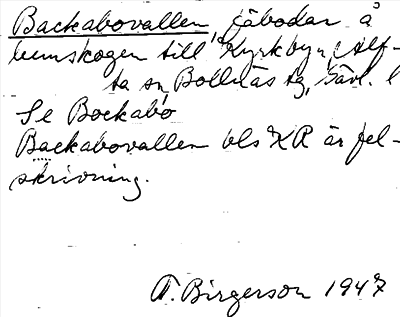 Backabovallen, fäbodar å
hemskogen till Kyrkbyn, Alf-
ta sn, Bollnäs tg, Gävl. l
Se Bockabo
Backabovallen bls XR är fel-
skrivning.
T. Birgerson 1947